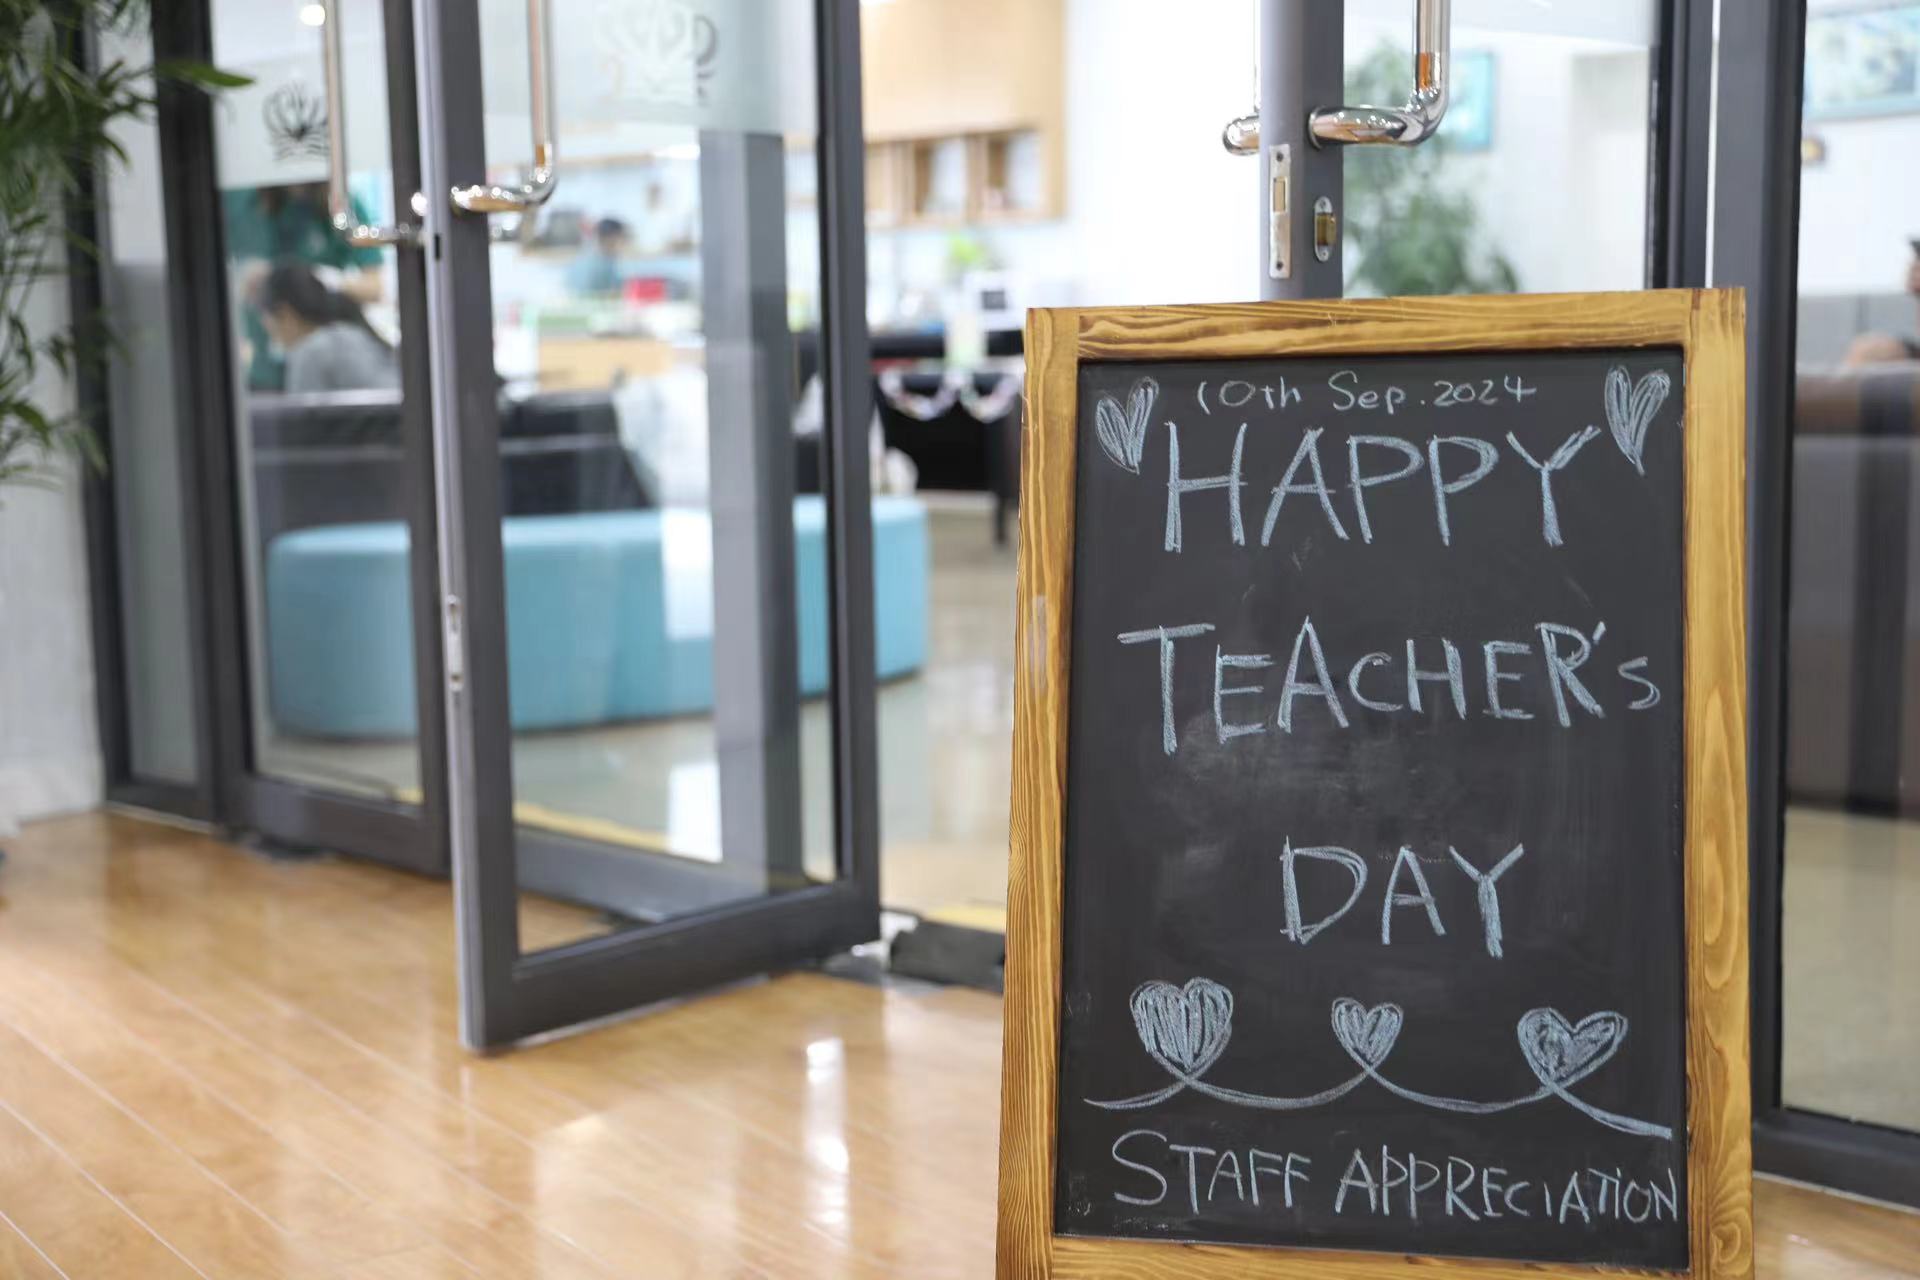 10th Sep. 2024
HAPPY
TEACHER's
DAY
STAFF APPRECIATION